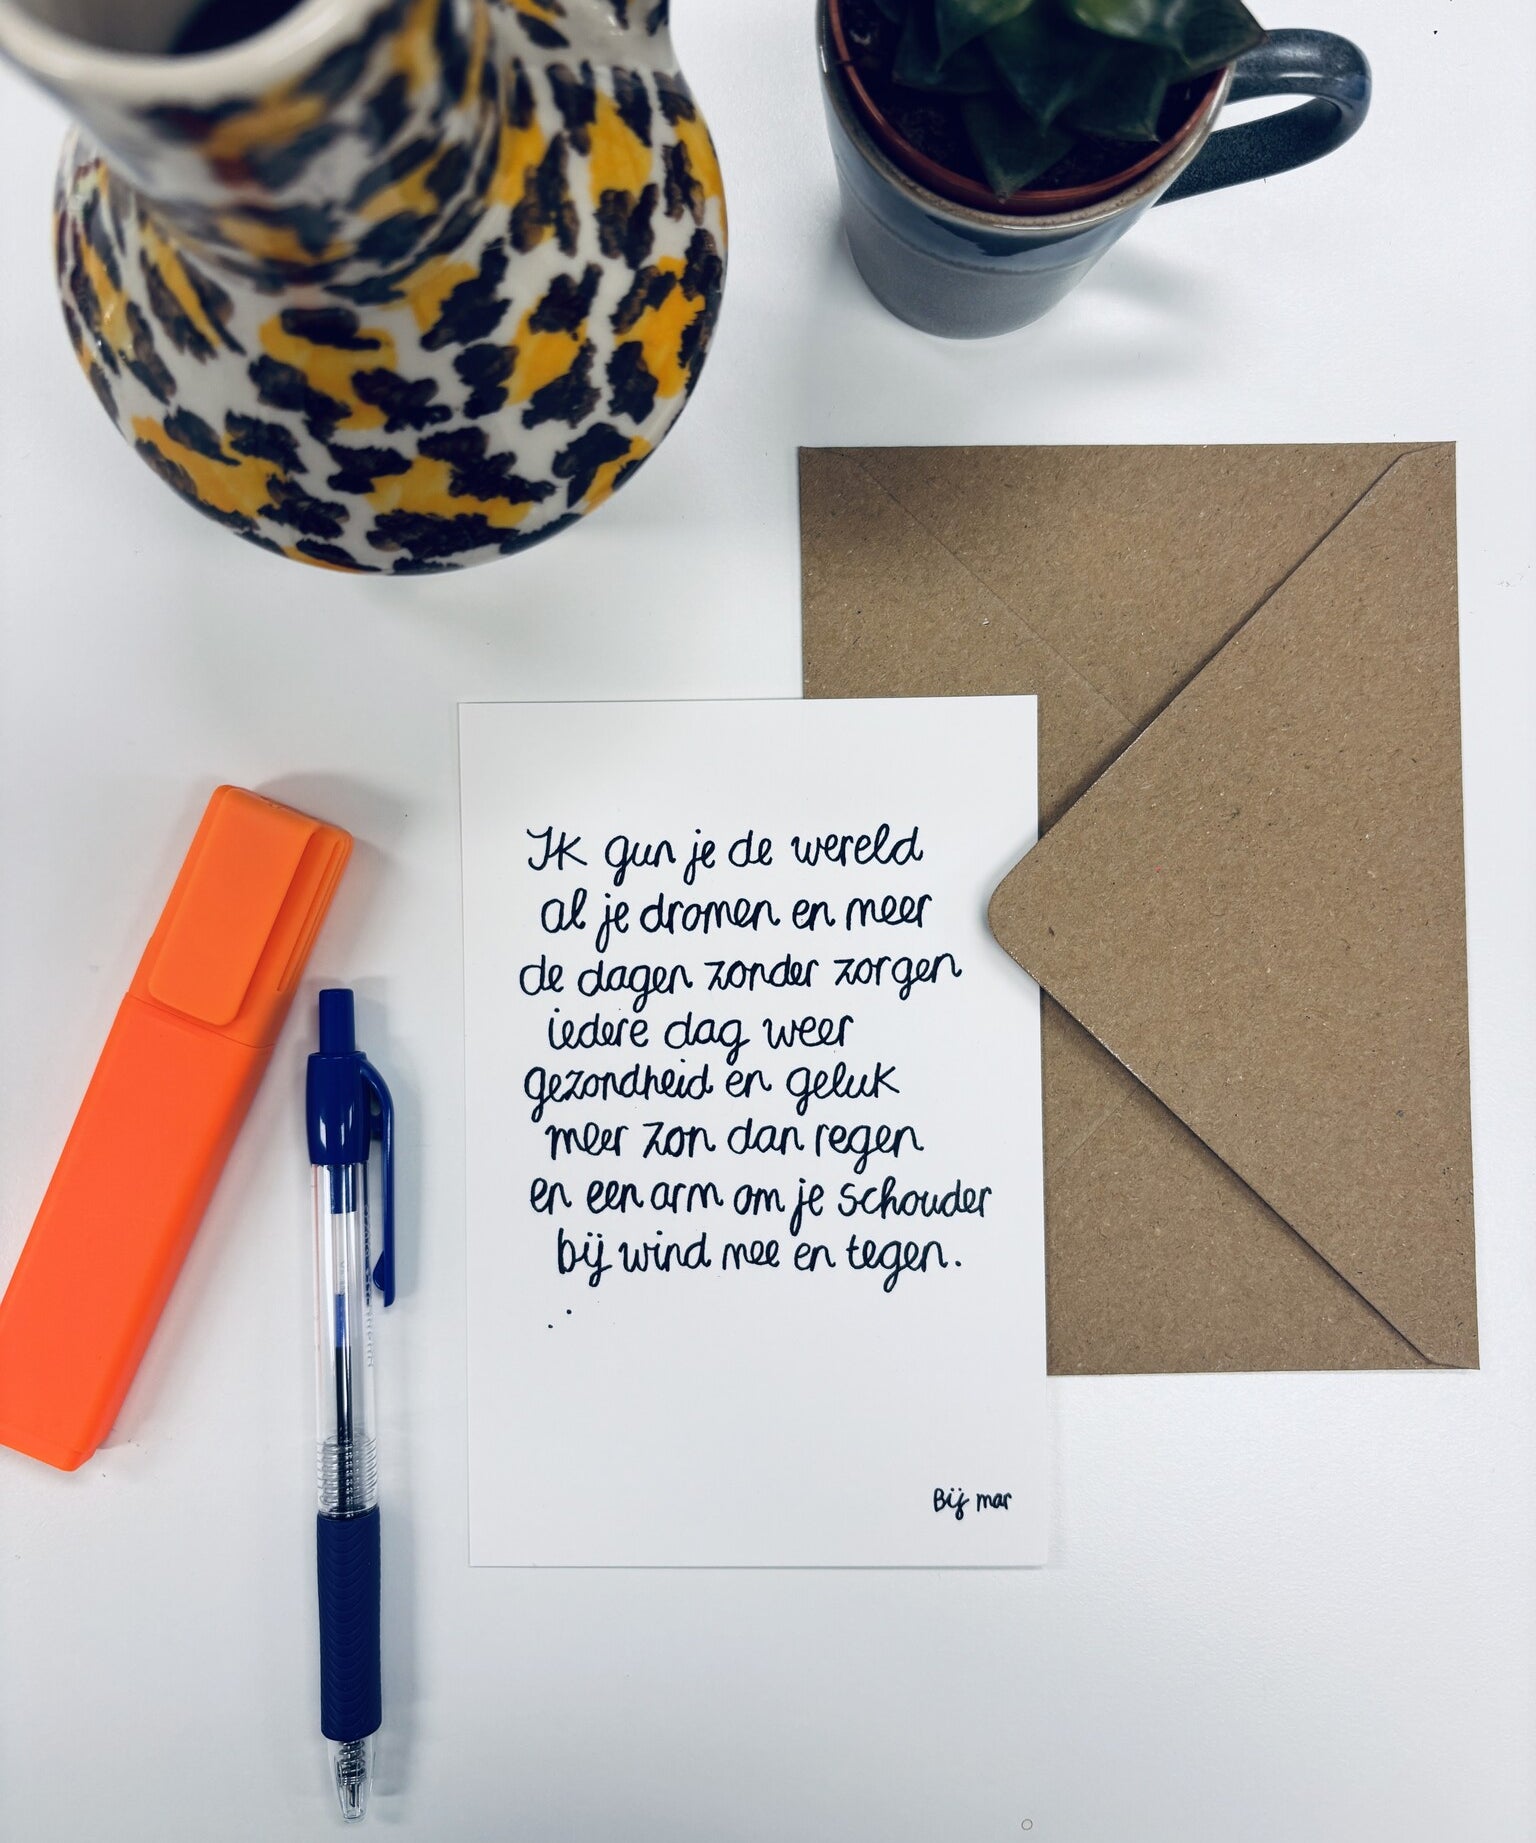 Ik gun je de wereld
al je dromen en meer
de dagen zonder zorgen
iedere dag weer
gezondheid en geluk
meer zon dan regen
en een arm om je schouder
bij wind mee en tegen.
Bij mar